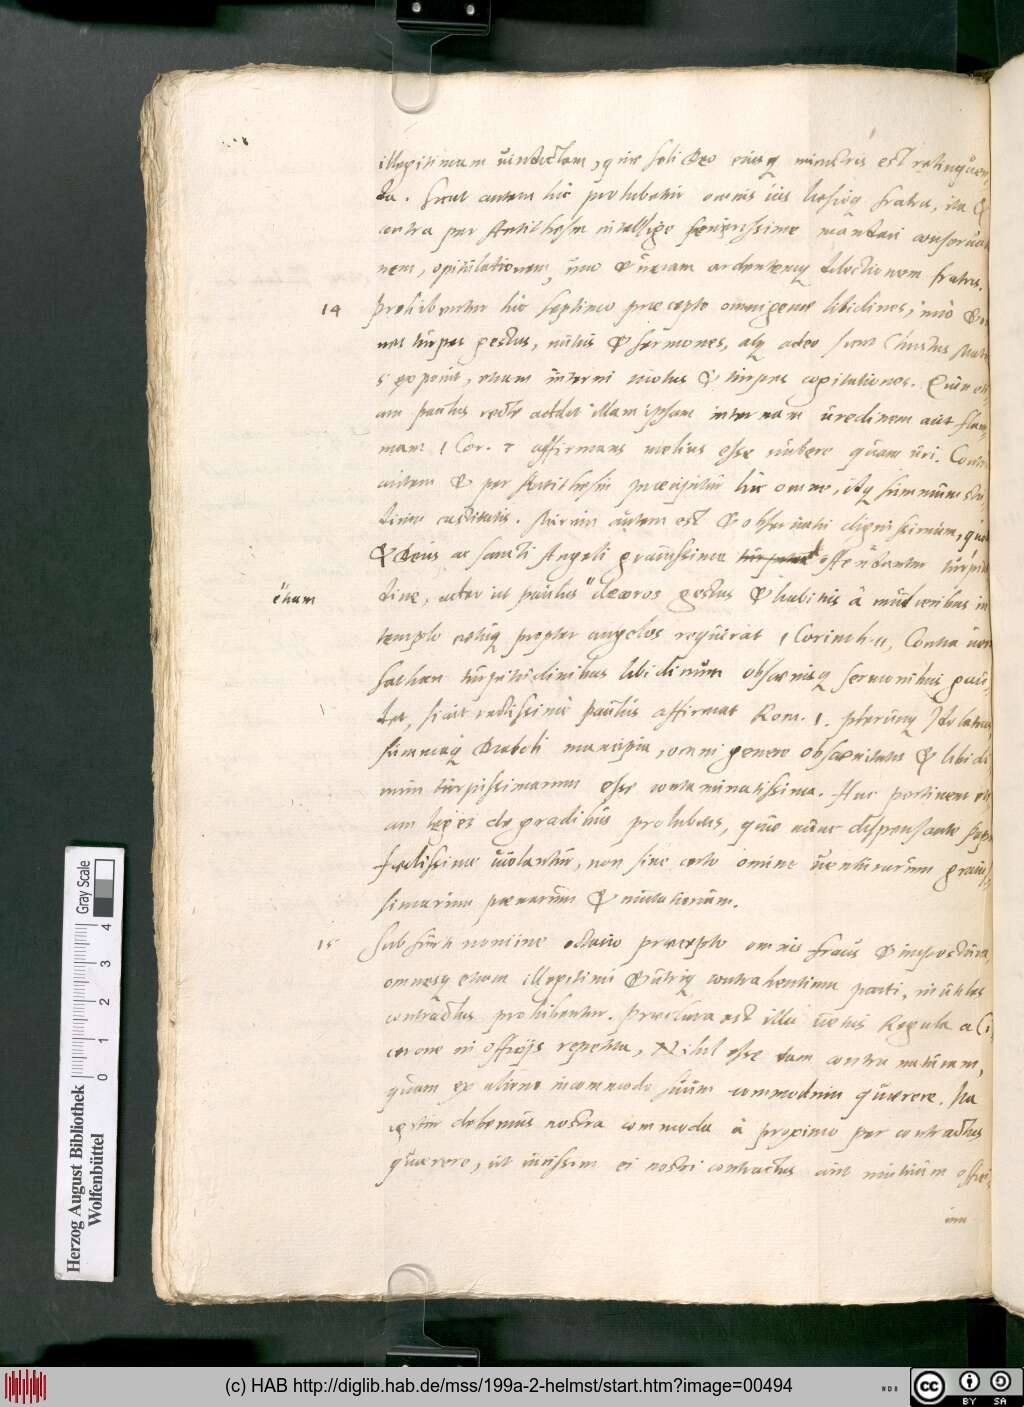 illegitimam uindictam, quae soli Deo eiusq ministris est relinquen,
da. Sicut autem hic prohibetur omnis uis laesioq fratris, ita &
contra per Antithesin intellige seuerissime mandari conserua
nem, opitulationem, imo & ueram ardentemq dilectionem fratris.
14 Prohibentur hic septimo praecepto omnigenae libidines, imò &
nes turpes gestus, nutus & sermones, atq adeo sicut Christus Matt
5 exponit, etiam interni motus & turpes cogitationes. Quin eti
am Paulus recte addit illam ipsam internam uredinem aut flam,
mam 1 Cor. 7 affirmans melius esse nubere quam uri. Contra
autem & per Antithesin praecipitur hic omne, atq summum stu
dium castitatis. Mirum autem est & obseruatu dignissimum, quod
& Deus ac sancti Angeli grauissime offendantur turpitu
etiam
dine, ut Paulus decoros gestus & habitus à mulieribus in
templo propter angelos requirat 1 Corinth. 11, Contra uero
Sathan turpitudinibus libidinum obscaenisq sermonibus gau,
det, sicut rectissime Paulus affirmat Rom. 1. plerunq Idolatras
summaq Diaboli mancipia, omni genere obscaenitatis & libidi
num turpissimarum esse contaminatissima. Huc pertinent eti
am leges de gradibus prohibitis, quae nunc dispensante Papa
foedissime uiolantur, non sine certo omine uenturarum grauis,
simarum paenarum & mutationum.
15 Sub furti nomine octauo praecepto omnis fraus & impostura,
omnesq etiam illegitimi & utriq contrahentium parti, inutiles
contractus prohibentur. Praeclara est illa uetus Regula a Ci,
cerone in officijs repetita, Nihil esse tam contra naturam,
quam ex alieno incommodo suum commodum quaerere. Ita
debemus nostra commoda à proximo per contractus
quaerere, ut uicissim ei nostri contractus sint mutuum offici,
um
Herzog August Bibliothek
Wolfenbüttel
0 1 2 3 4
Gray Scale
(c) HAB http://diglib.hab.de/mss/199a-2-helmst/start.htm?image=00494
cc BY SA